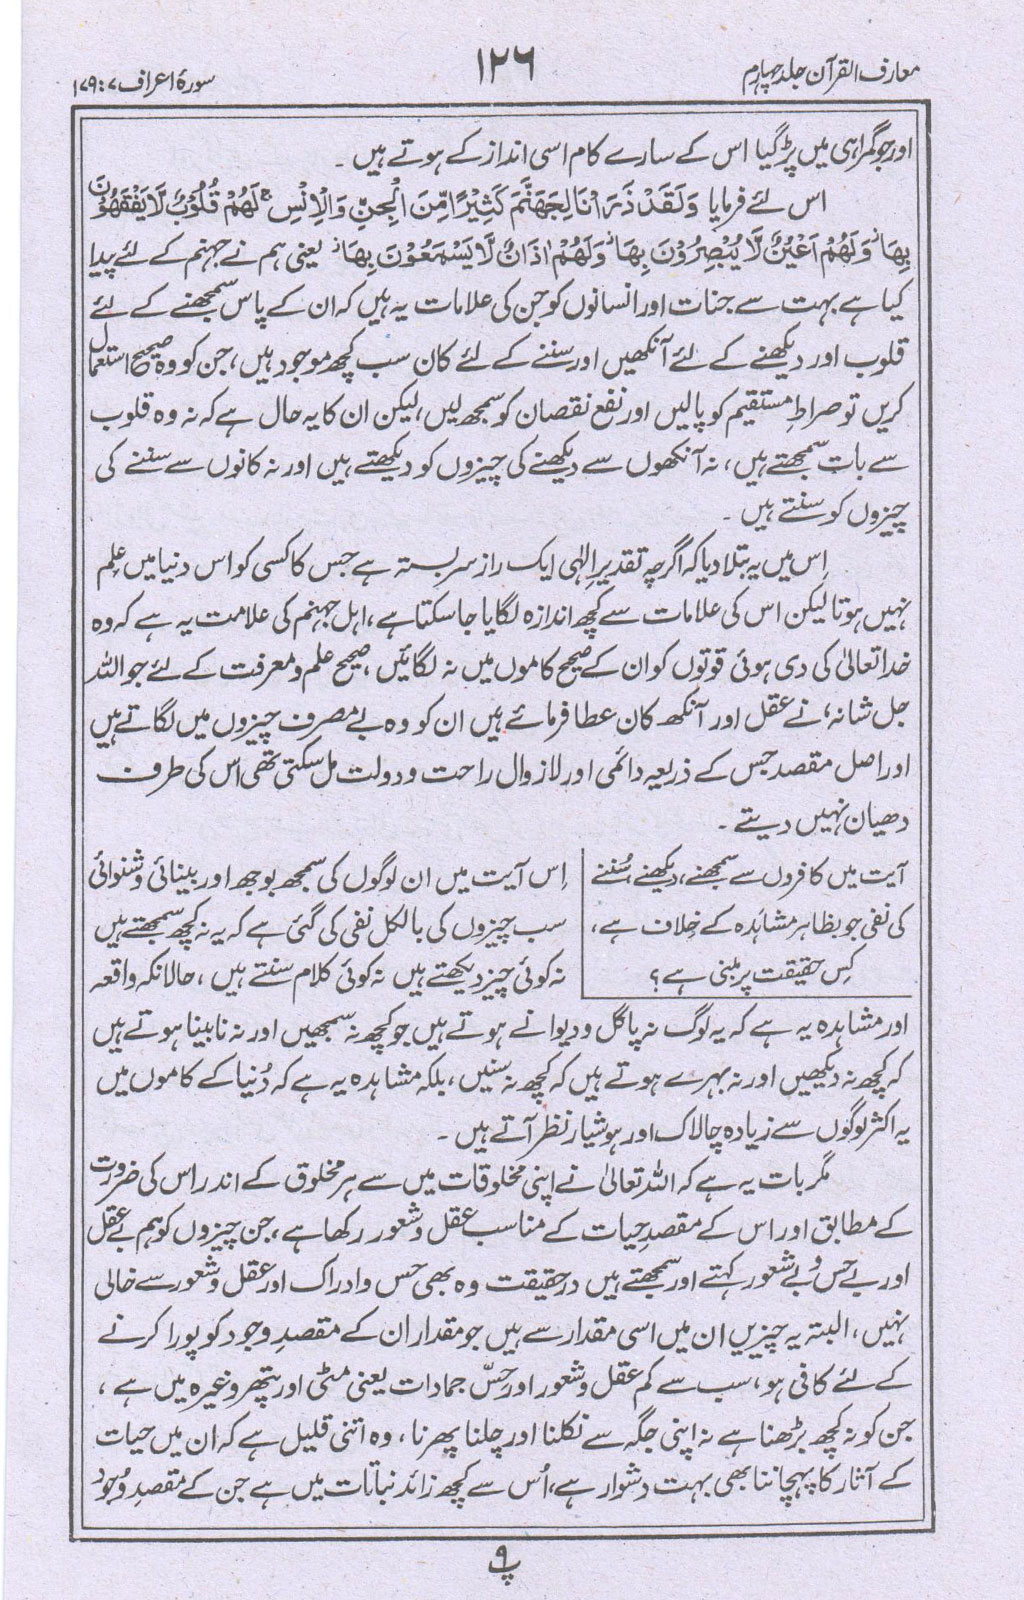 معارف القرآن جلد چہارم
۱۲۶
سورۂ اعراف ۷ : ۱۷۹
اور جو گمراہی میں پڑ گیا اس کے سارے کام اسی انداز کے ہوتے ہیں ۔
اس لئے فرمایا وَلَقَدْ ذَرَأْنَا لِجَهَنَّمَ كَثِيْرًا مِّنَ الْجِنِّ وَالْاِنْسِ ۖ لَهُمْ قُلُوْبٌ لَّا يَفْقَهُوْنَ
بِهَا ۡ وَلَهُمْ اَعْيُنٌ لَّا يُبْصِرُوْنَ بِهَا ۡ وَلَهُمْ اٰذَانٌ لَّا يَسْمَعُوْنَ بِهَا ۭ یعنی ہم نے جہنم کے لئے پیدا
کیا ہے بہت سے جنات اور انسانوں کو جن کی علامات یہ ہیں کہ ان کے پاس سمجھنے کے لئے
قلوب اور دیکھنے کے لئے آنکھیں اور سننے کے لئے کان سب کچھ موجود ہیں، جن کو وہ صحیح استعمال
کریں تو صراطِ مستقیم کو پالیں اور نفع نقصان کو سمجھ لیں، لیکن ان کا یہ حال ہے کہ نہ وہ قلوب
سے بات سمجھتے ہیں، نہ آنکھوں سے دیکھنے کی چیزوں کو دیکھتے ہیں اور نہ کانوں سے سننے کی
چیزوں کو سنتے ہیں ۔
اِس میں یہ بتلا دیا کہ اگرچہ تقدیرِ الٰہی ایک راز سر بستہ ہے جس کا کسی کو اس دنیا میں علم
نہیں ہوتا لیکن اس کی علامات سے کچھ اندازہ لگایا جا سکتا ہے، اہل جہنم کی علامت یہ ہے کہ وہ
خدا تعالیٰ کی دی ہوئی قوتوں کو ان کے صحیح کاموں میں نہ لگائیں، صحیح علم و معرفت کے لئے جو اللہ
جل شانہٗ نے عقل اور آنکھ کان عطا فرمائے ہیں ان کو وہ بے مصرف چیزوں میں لگاتے ہیں
اور اصل مقصد جس کے ذریعہ دائمی اور لازوال راحت و دولت مل سکتی تھی اس کی طرف
دھیان نہیں دیتے ۔
آیت میں کافروں سے سمجھنے، دیکھنے، سُننے
کی نفی جو بظاہر مشاہدہ کے خلاف ہے،
کِس حقیقت پر مبنی ہے؟
اِس آیت میں ان لوگوں کی سمجھ بوجھ اور بینائی و شنوائی
سب چیزوں کی بالکل نفی کی گئی ہے کہ یہ نہ کچھ سمجھتے ہیں
نہ کوئی چیز دیکھتے ہیں نہ کوئی کلام سنتے ہیں، حالانکہ واقعہ
اور مشاہدہ یہ ہے کہ یہ لوگ نہ پاگل و دیوانے ہوتے ہیں جو کچھ نہ سمجھیں اور نہ نابینا ہوتے ہیں
کہ کچھ نہ دیکھیں اور نہ بہرے ہوتے ہیں کہ کچھ نہ سنیں، بلکہ مشاہدہ یہ ہے کہ دُنیا کے کاموں میں
یہ اکثر لوگوں سے زیادہ چالاک اور ہوشیار نظر آتے ہیں ۔
مگر بات یہ ہے کہ اللہ تعالیٰ نے اپنی مخلوقات میں سے ہر مخلوق کے اندر اس کی ضرورت
کے مطابق اور اس کے مقصدِ حیات کے مناسب عقل و شعور رکھا ہے، جن چیزوں کو ہم بے عقل
اور بے حس و بے شعور کہتے اور سمجھتے ہیں درحقیقت وہ بھی حس و ادراک اور عقل و شعور سے خالی
نہیں، البتہ یہ چیزیں ان میں اسی مقدار سے ہیں جو مقدار ان کے مقصدِ وجود کو پورا کرنے
کے لئے کافی ہو، سب سے کم عقل و شعور اور حسّ جمادات یعنی مٹی اور پتھر وغیرہ میں ہے،
جن کو نہ کچھ بڑھنا ہے نہ اپنی جگہ سے نکلنا اور چلنا پھرنا، وہ اتنی قلیل ہے کہ ان میں حیات
کے آثار کا پہچاننا بھی بہت دشوار ہے، اُس سے کچھ زائد نباتات میں ہے جن کے مقصدِ وجود
پ ۹